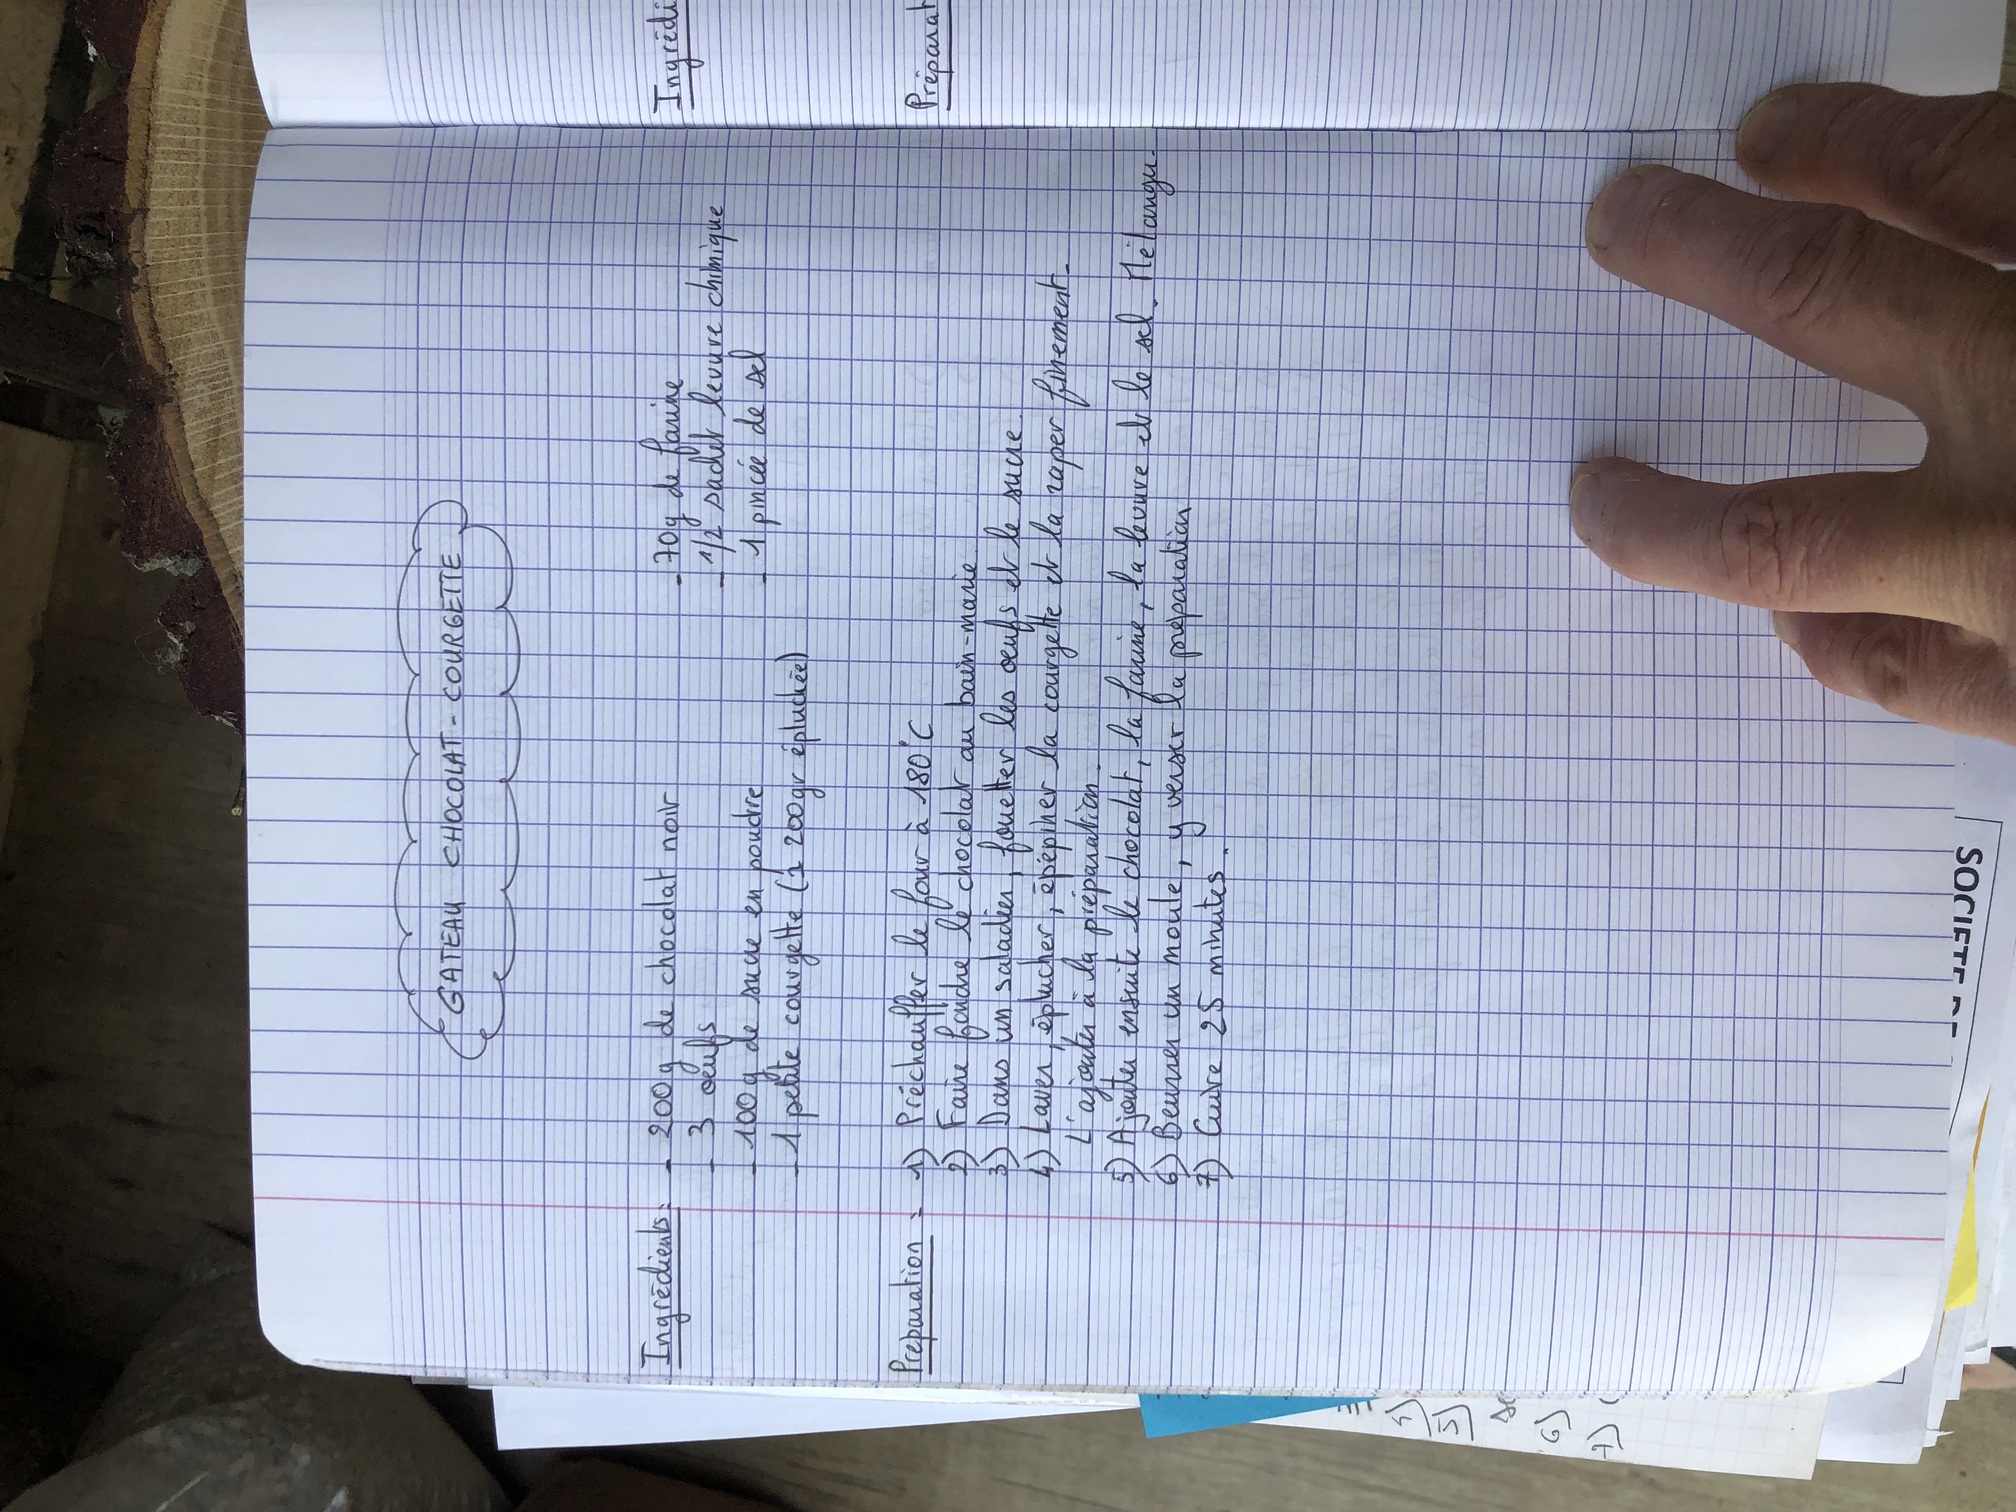 GATEAU CHOCOLAT - COURGETTE
Ingrédients:
- 200g de chocolat noir
- 3 oeufs
- 100g de sucre en poudre
- 1 petite courgette (1 200gr épluchée)
- 70g de farine
- 1/2 sachet levure chimique
- 1 pincée de sel
Préparation -
1) Préchauffer le four à 180°C
2) Faire fondre le chocolat au bain-marie
3) Dans un saladier, fouetter les oeufs et le sucre
4) Laver, éplucher, épépiner la courgette et la raper finement.
L'ajouter à la préparation.
5) Ajouter ensuite le chocolat, la farine, la levure et le sel. Mélanger.
6) Beurrer un moule, y verser la préparation
7) Cuire 25 minutes.
Ingrédi
Préparat
SOCIETE
4)
5)
6)
7)